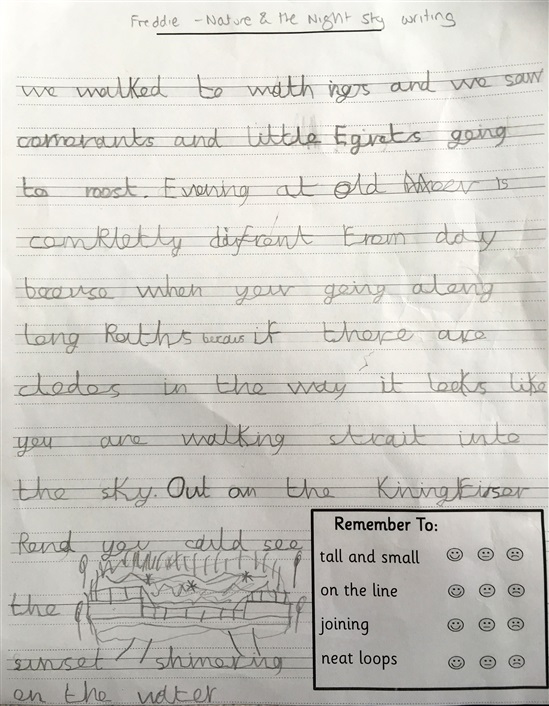 Freddie - Nature & the Night sky writing
we walked to math ings and we saw
comarants and little Egrets going
to roost. Evening at old Moor is
completly difrent from day
because when your going along
long Paths becaus if there are
clodes in the way it looks like
you are walking strait into
the sky. Out on the Kiningfiser
Pond you could see
the
sunset shimering
on the water
Remember To:
tall and small
on the line
joining
neat loops